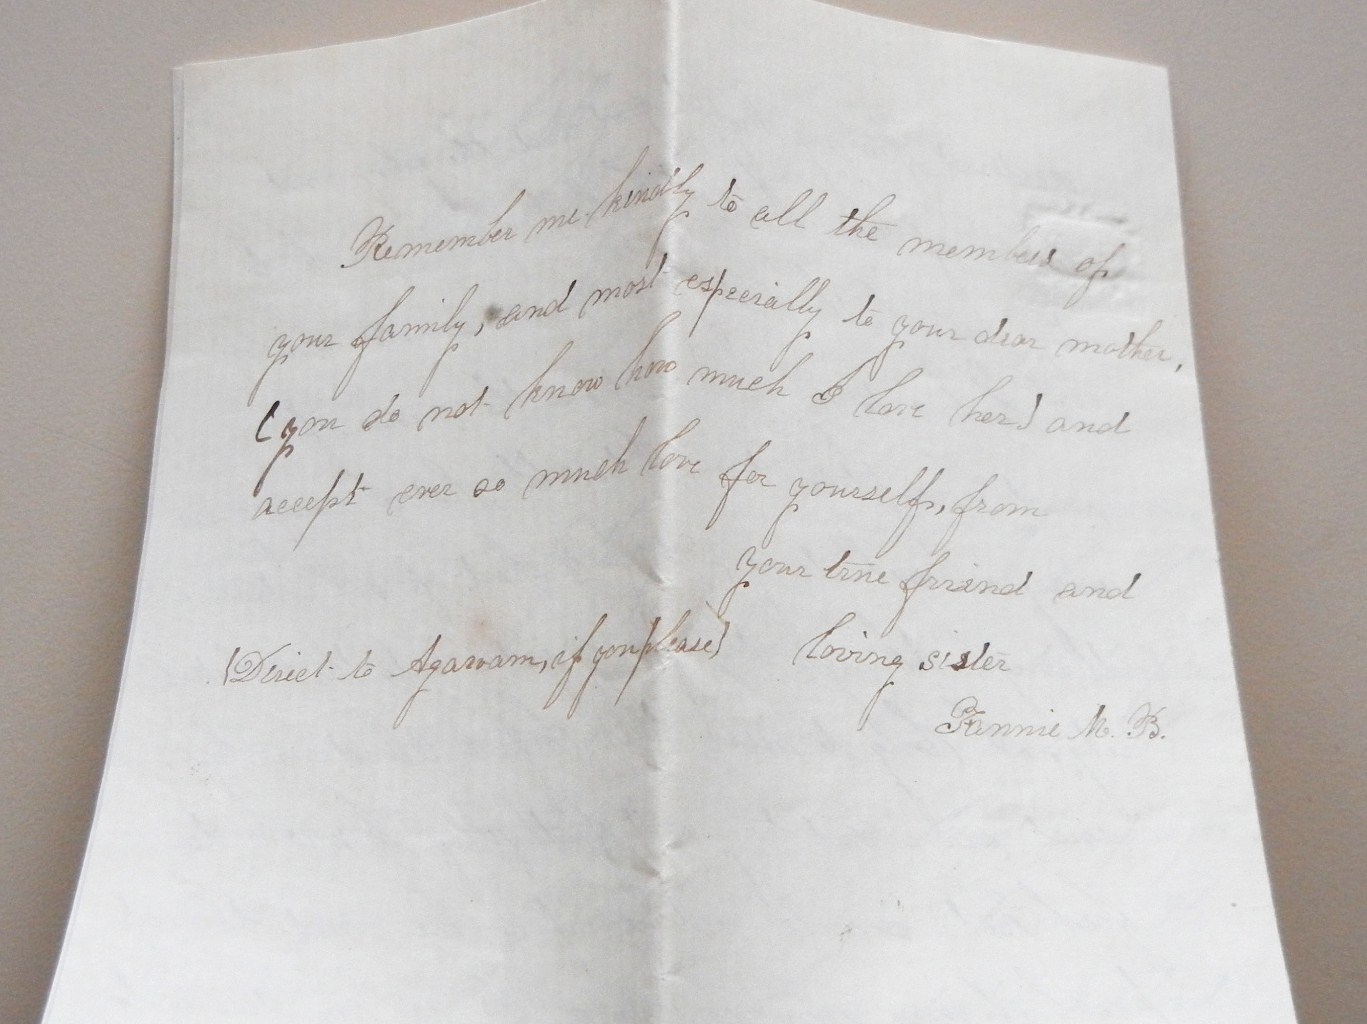 Remember me kindly to all the members of
your family, and most especially to your dear mother,
(you do not know how much I love her) and
accept ever so much love for yourself, from
your true friend and
(Direct to Agawam, if you please) loving sister
Fannie M. B.